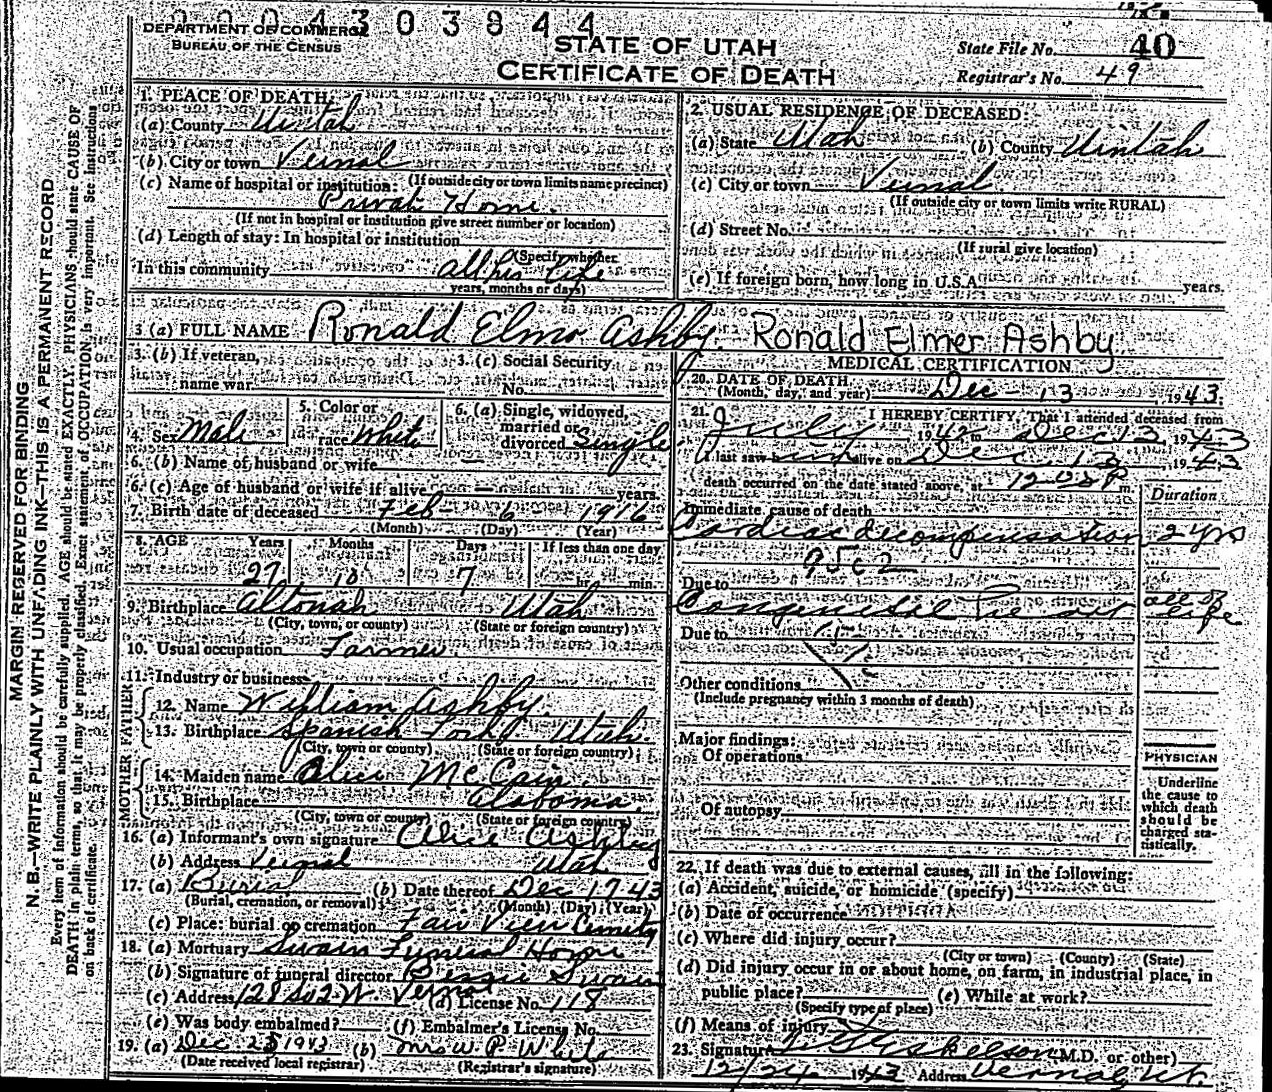 0 0 0 4 3 0 3 8 4 4
DEPARTMENT OF COMMERCE
BUREAU OF THE CENSUS
STATE OF UTAH
CERTIFICATE OF DEATH
State File No. 40
Registrar's No. 49
MARGIN RESERVED FOR BINDING
N. B.—WRITE PLAINLY WITH UNFADING INK—THIS IS A PERMANENT RECORD
Every item of information should be carefully supplied. AGE should be stated EXACTLY. PHYSICIANS should state CAUSE OF
DEATH in plain terms, so that it may be properly classified. Exact statement of OCCUPATION is very important. See Instructions
on back of certificate.
1. PLACE OF DEATH:
(a) County Uintah
(b) City or town Vernal
(If outside city or town limits name precinct)
(c) Name of hospital or institution:
Private Home.
(If not in hospital or institution give street number or location)
(d) Length of stay: In hospital or institution
(Specify whether
In this community all his life
years, months or days)
2. USUAL RESIDENCE OF DECEASED:
(a) State Utah (b) County Uintah
(c) City or town Vernal
(If outside city or town limits write RURAL)
(d) Street No.
(If rural give location)
(e) If foreign born, how long in U.S.A. years.
3 (a) FULL NAME Ronald Elmo Ashby. Ronald Elmer Ashby
3. (b) If veteran, name war
3. (c) Social Security No.
4. Sex Male
5. Color or race White
6. (a) Single, widowed, married or divorced Single
6. (b) Name of husband or wife —
6. (c) Age of husband or wife if alive — years.
7. Birth date of deceased Feb 6 1916
(Month) (Day) (Year)
8. AGE Years Months Days If less than one day
27 10 7 hr. min.
9. Birthplace Altonah Utah
(City, town, or county) (State or foreign country)
10. Usual occupation Farmer
11. Industry or business
FATHER
12. Name William Ashby
13. Birthplace Spanish Fork Utah
(City, town or county) (State or foreign country)
MOTHER
14. Maiden name Alice McCain
15. Birthplace Alaboma
(City, town or county) (State or foreign country)
16. (a) Informant's own signature Alice Ashby
(b) Address Vernal Utah
17. (a) Burial (b) Date thereof Dec 17-43
(Burial, cremation, or removal) (Month) (Day) (Year)
(c) Place: burial or cremation Fair View
18. (a) Mortuary Swain Funeral Home
(b) Signature of funeral director Bessie Swain
(c) Address 128 So 2 W. Vernal (d) License No. 118
(e) Was body embalmed? (f) Embalmer's License No.
19. (a) Dec 28 1943 (b) Mrs W P White
(Date received local registrar) (Registrar's signature)
MEDICAL CERTIFICATION
20. DATE OF DEATH Dec - 13 1943.
(Month, day, and year)
21. I HEREBY CERTIFY, That I attended deceased from
July 1942 to Dec 13, 1943
I last saw him alive on Dec 13, 1943
death occurred on the date stated above, at 12:08 P m.
Duration
Immediate cause of death
Cardiac decompensation 2 yrs
95c2
Due to
Congenital Heart all of life
Due to
Other conditions
(Include pregnancy within 3 months of death)
Major findings:
Of operations
Of autopsy
PHYSICIAN
Underline
the cause to
which death
should be
charged sta-
tistically.
22. If death was due to external causes, fill in the following:
(a) Accident, suicide, or homicide (specify)
(b) Date of occurrence
(c) Where did injury occur?
(City or town) (County) (State)
(d) Did injury occur in or about home, on farm, in industrial place, in
public place? (e) While at work?
(Specify type of place)
(f) Means of injury
23. Signature Eskelson M.D. or other)
12/24 1943 Address Vernal Ut